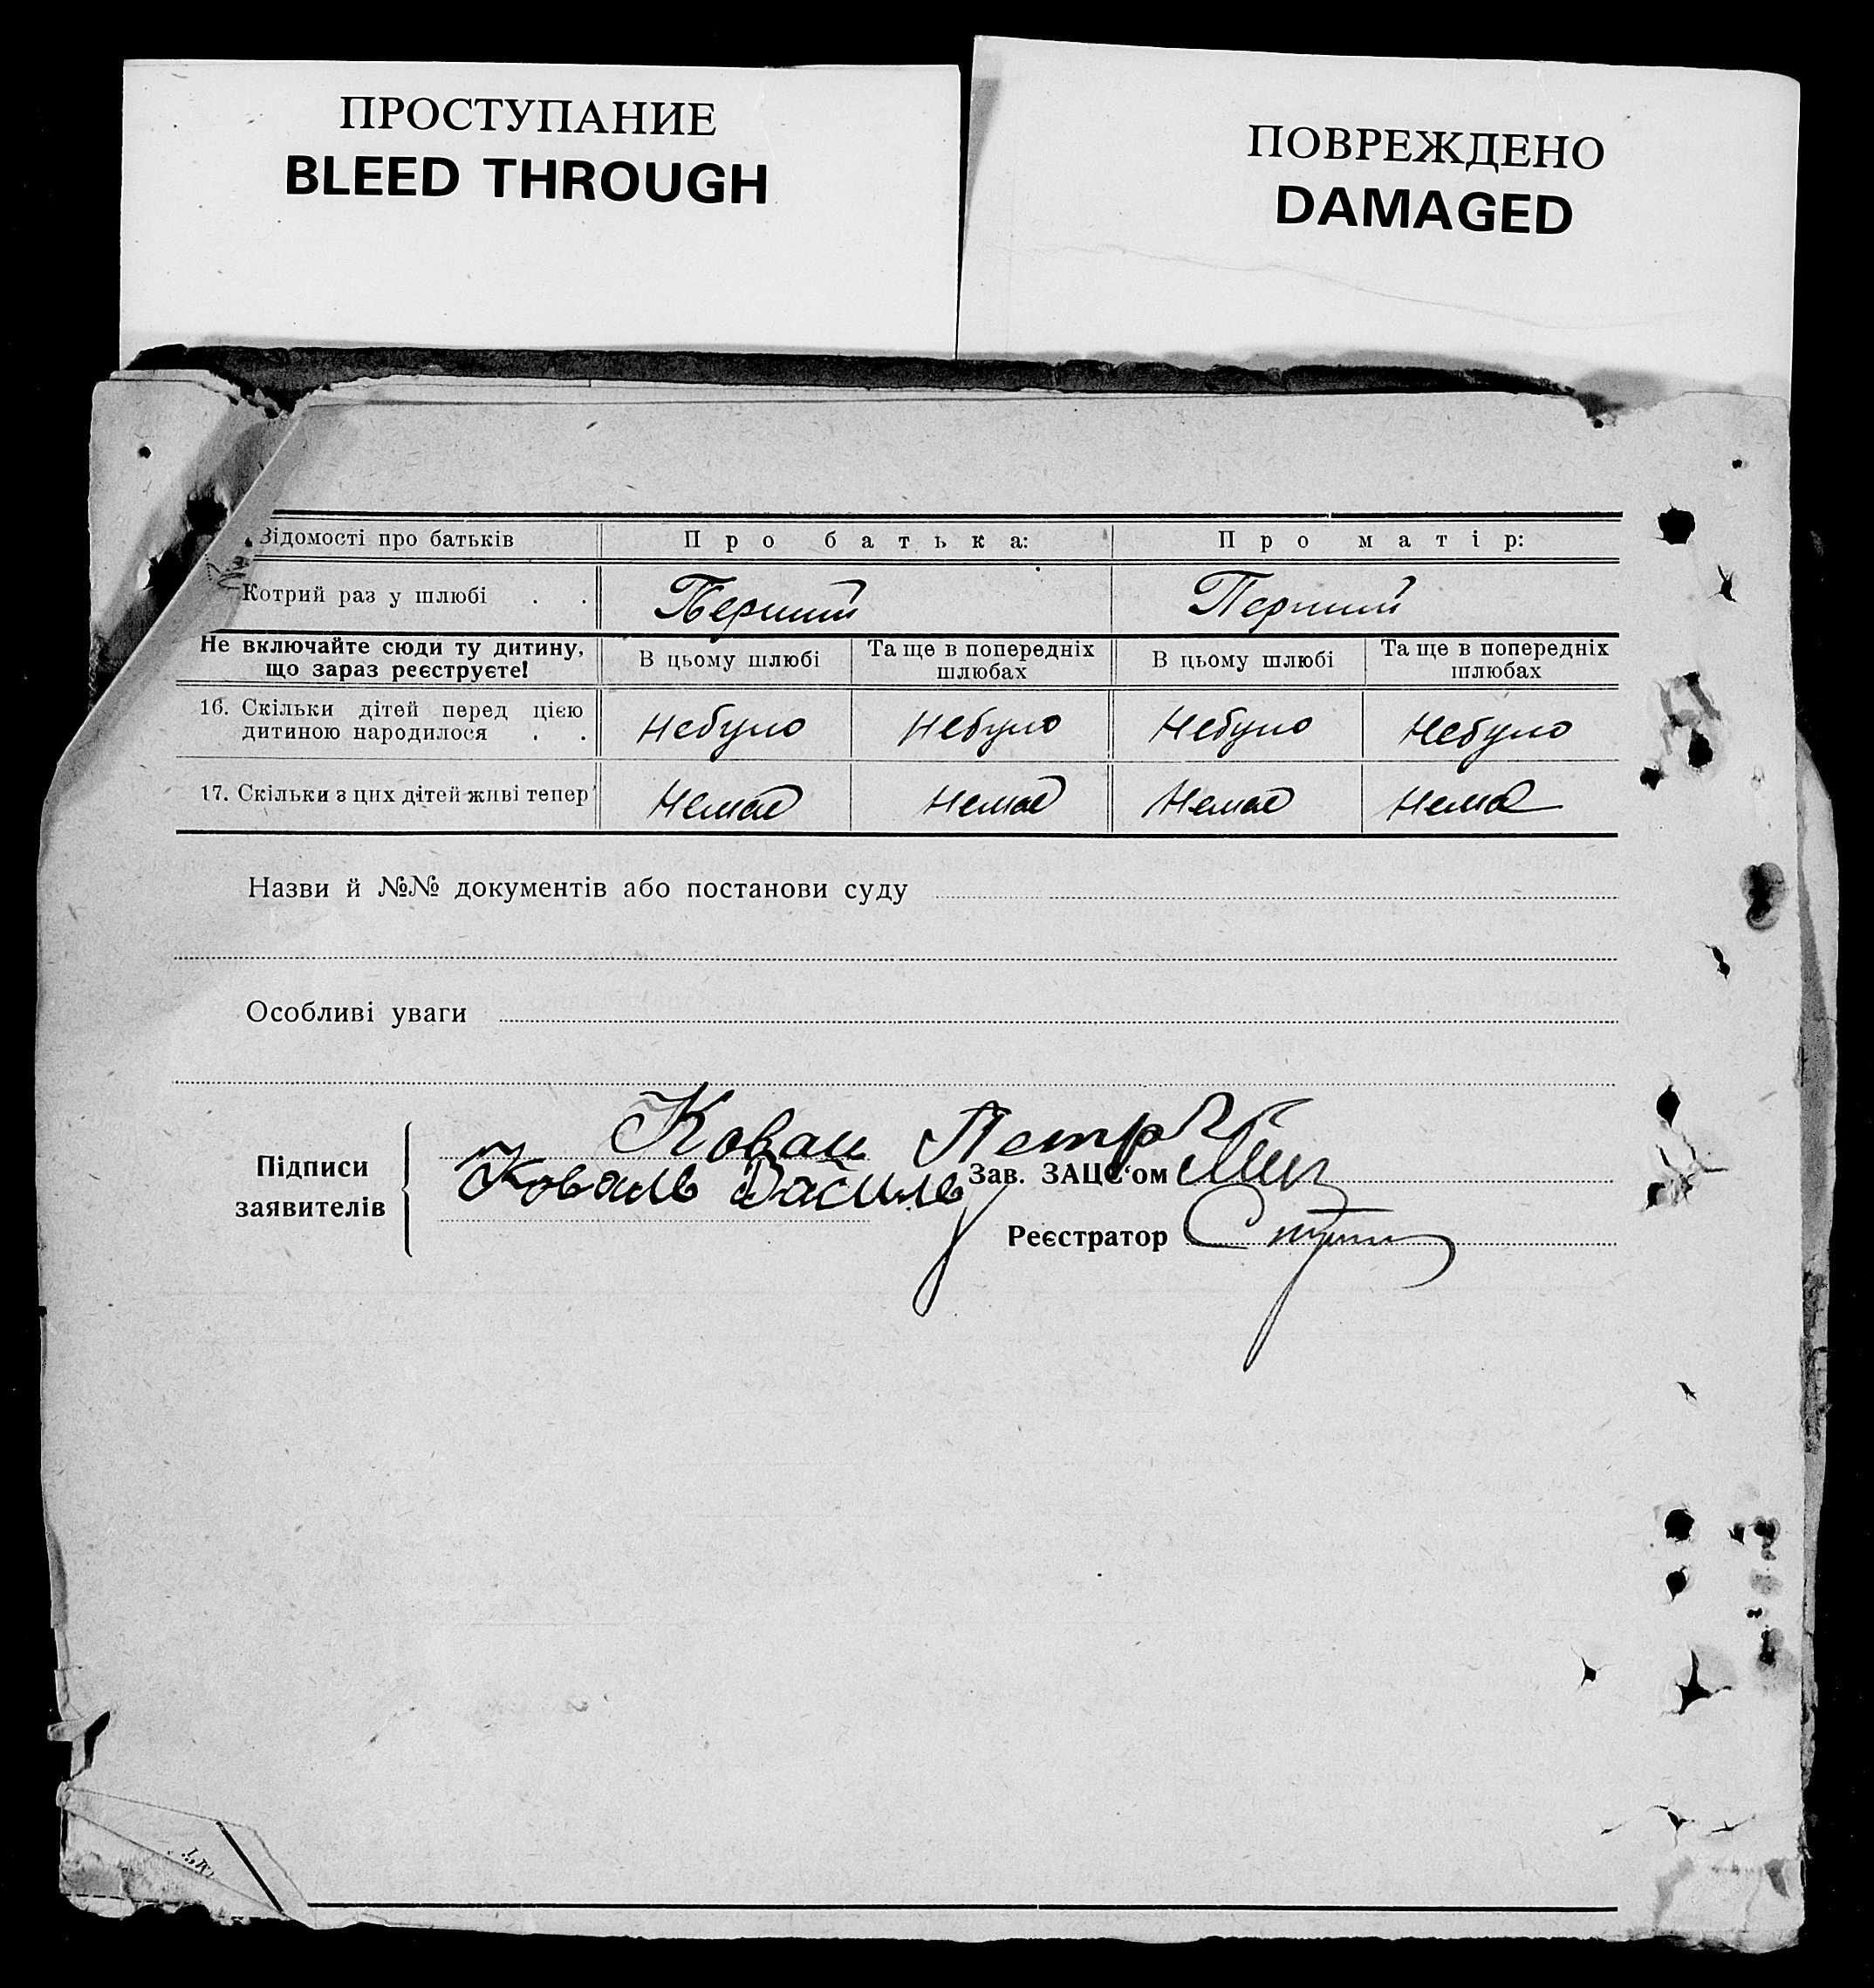 ПРОСТУПАНИЕ
BLEED THROUGH
ПОВРЕЖДЕНО
DAMAGED
Відомості про батьків Про батька: Про матір:
Котрий раз у шлюбі . . Перший Перший
Не включайте сюди ту дитину, що зараз реєструєте! В цьому шлюбі Та ще в попередніх шлюбах В цьому шлюбі Та ще в попередніх шлюбах
16. Скільки дітей перед цією
дитиною народилося . . Небуло Небуло Небуло Небуло
17. Скільки з цих дітей живі тепер Немає Немає Немає Немає
Назви й №№ документів або постанови суду
Особливі уваги
Підписи
заявителів
Коваль Петро
Коваль Василь
Зав. ЗАЦС'ом
Реєстратор